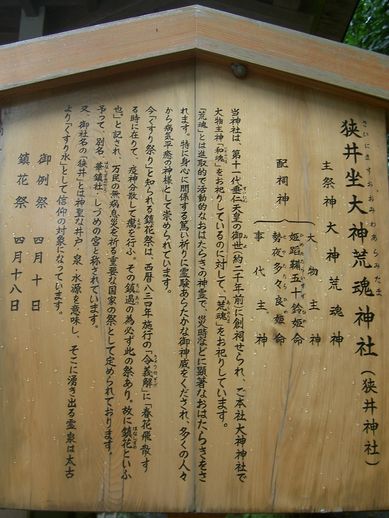 狭井坐大神荒魂神社(狭井神社)
さいにますおおみわあらみたま
主祭神 大神荒魂神
配祠神
大物主神
姫蹈鞴五十鈴姫命
勢夜多々良姫命
事代主神
当神社は、第十一代垂仁天皇の御世(約二千年前)に創祀せられ、ご本社大神神社で
大物主神「和魂」をお祀りしているのに対して、「荒魂」をお祀りしています。
「荒魂」とは進取的で活動的なおはたらきの神霊で、災時などに顕著なおはたらきをさ
れます。特に身心に関係する篤い祈りに霊験あらたかな御神威をくだされ、多くの人々
から病気平癒の神様として崇められています。
今「くすり祭り」と知られる鎮花祭は、西暦八三四年施行の「令義解」に「春花飛散す
る時に在りて、疫神分散して癘を行ふ。その鎮遏の為必ず此の祭あり。故に鎮花といふ
也」と記され、万民の無病息災を祈る重要な国家の祭として定められております。
予って、別名「華鎮社・しづめの宮」と称されています。
又、御社名の「狭井」とは神聖な井戸・泉・水源を意味し、そこに湧き出る霊泉は太古
より「くすり水」として信仰の対象になっています。
御例祭 四月十日
鎮花祭 四月十八日